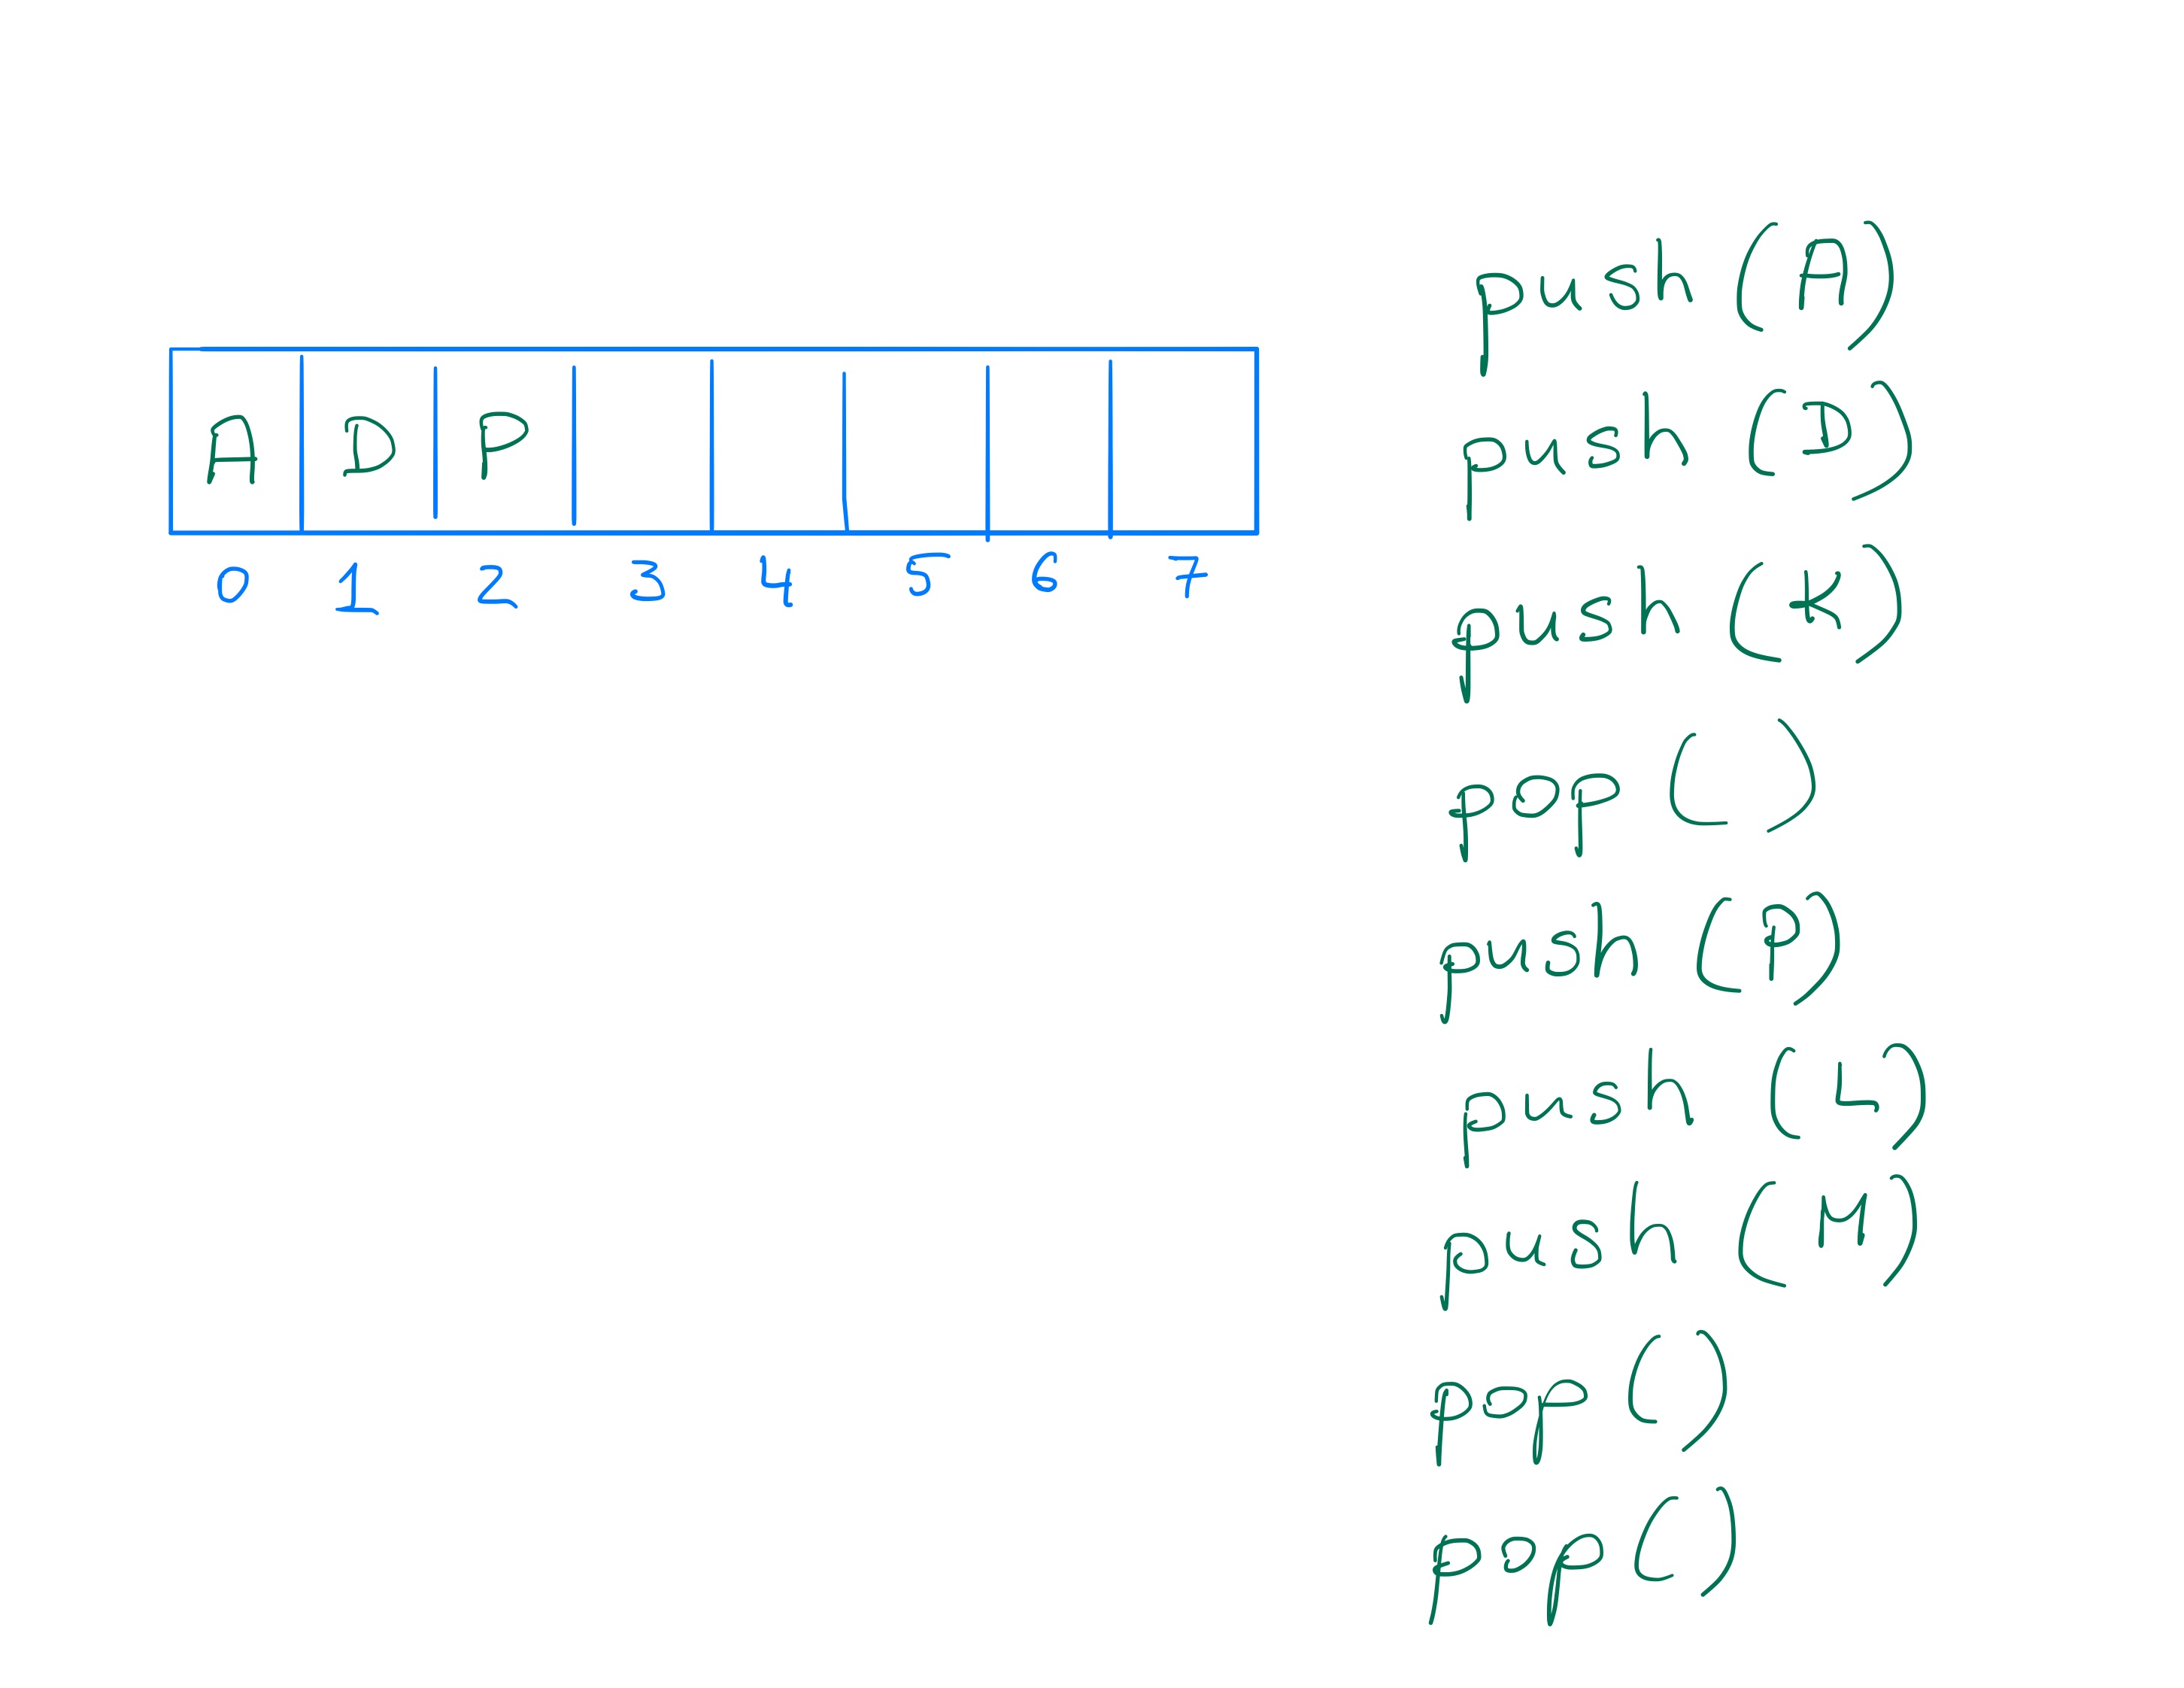 A D P
0 1 2 3 4 5 6 7
push (A)
push (D)
push (K)
pop ( )
push (P)
push (L)
push (M)
pop ( )
pop ( )